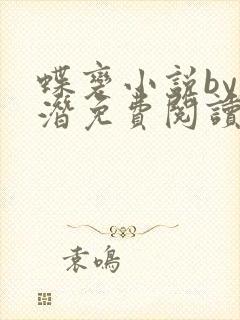 蝶变小说by
潜免费阅读
袁鸣